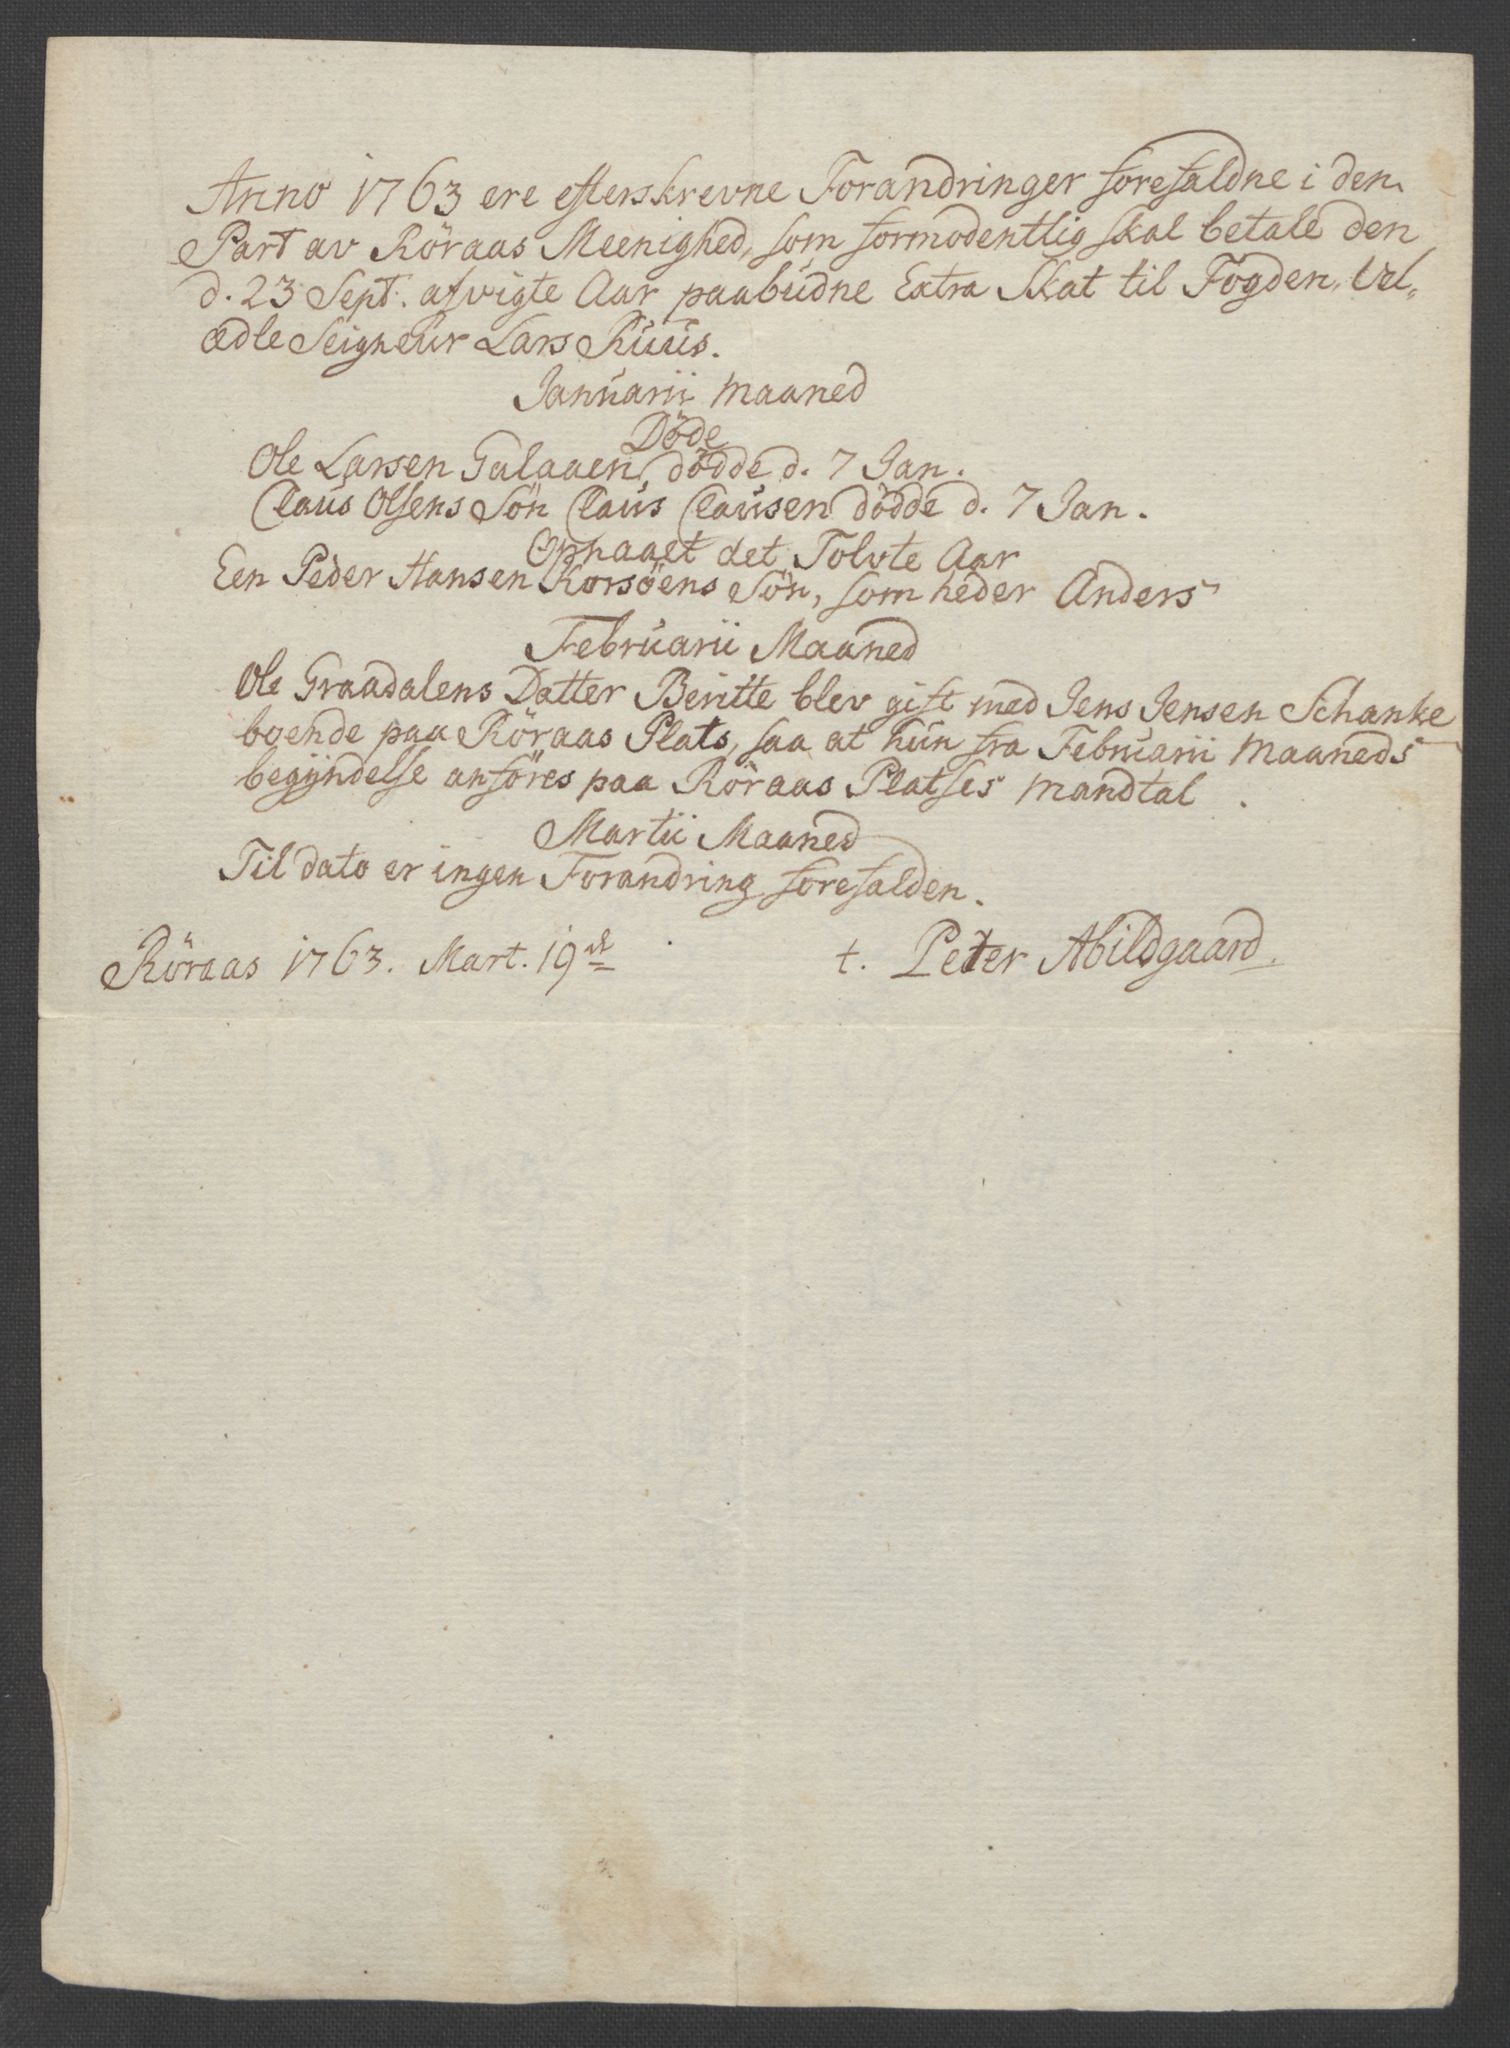 Anno 1763 ere efterskrevne Forandringer forefaldne i den
Part av Röraas Meenighed, som formodentlig skal betale den
d. 23 Sept. afvigte Aar paabudne Extra Skat til Fogden, Vel„
ædle Seigneur Lars Ruus.
Januarii Maaned
Döde
Ole Larsen Galaaen, dödde d. 7 Jan.
Claus Olsens Sön Claus Clausen dödde d. 7 Jan.
Opnaaet det Tolvte Aar
Een Peder Hansen Korsöens Sön, som heder Anders
Februarii Maaned
Ole Graadalens Datter Beritte blev gift med Jens Jensen Schanke
boende paa Röraas Plats, saa at hun fra Februarii Maaneds
begyndelse anföres paa Röraas Platses Mandtal.
Martii Maaned
Til dato er ingen Forandring forefalden.
Röraas 1763. Mart. 19de
t. Peter Abildgaard.